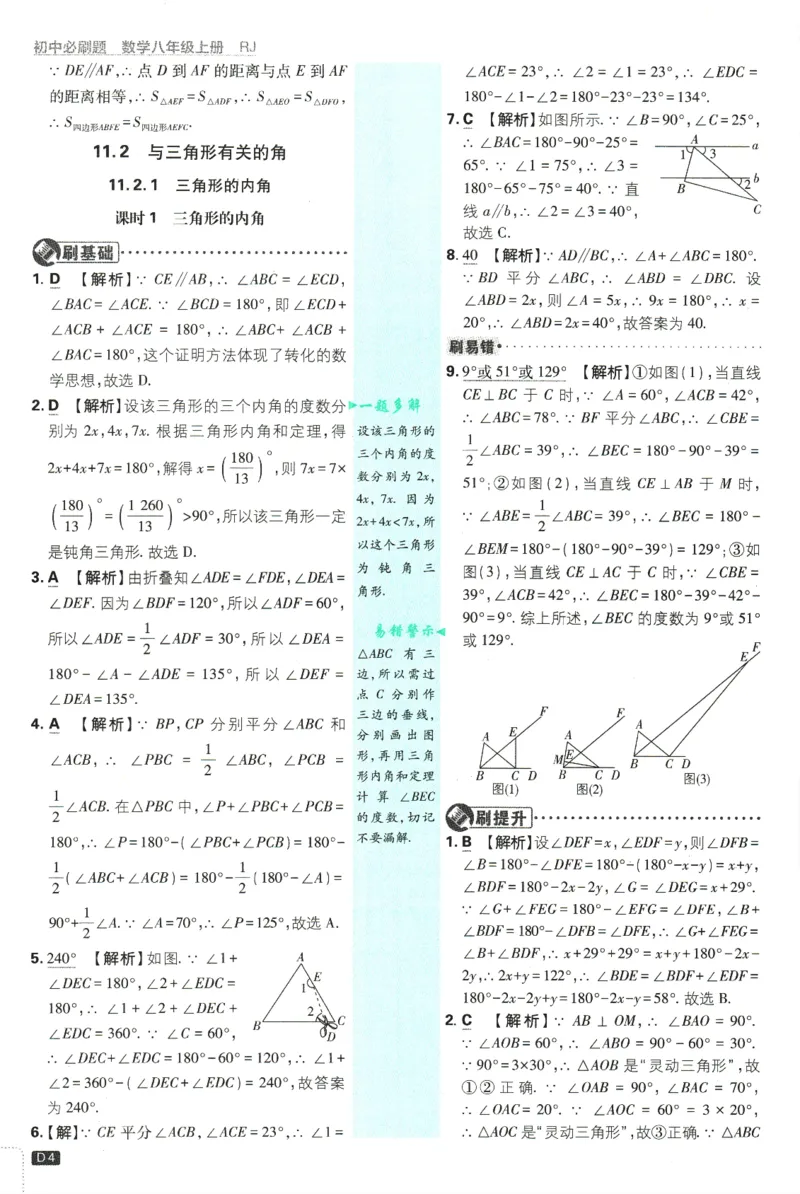 初中必刷题 数学八年级上册 RJ
∵ DE∥AF,∴ 点 D 到 AF 的距离与点 E 到 AF
的距离相等,∴ S△AEF=S△ADF,∴ S△AEO=S△DFO,
∴ S四边形ABFE=S四边形AEFC.
11.2 与三角形有关的角
11.2.1 三角形的内角
课时1 三角形的内角
刷基础
1. D 【解析】∵ CE∥AB,∴ ∠ABC=∠ECD,
∠BAC=∠ACE. ∵ ∠BCD=180°,即∠ECD+
∠ACB+∠ACE=180°,∴ ∠ABC+∠ACB+
∠BAC=180°,这个证明方法体现了转化的数
学思想,故选 D.
2. D 【解析】设该三角形的三个内角的度数分
别为 2x,4x,7x. 根据三角形内角和定理,得
2x+4x+7x=180°,解得 x=(180/13)°,则 7x=7×
(180/13)°=(1 260/13)°>90°,所以该三角形一定
是钝角三角形. 故选 D.
3. A 【解析】由折叠知∠ADE=∠FDE,∠DEA=
∠DEF. 因为∠BDF=120°,所以∠ADF=60°,
所以∠ADE=1/2∠ADF=30°,所以∠DEA=
180°-∠A-∠ADE=135°,所以∠DEF=
∠DEA=135°.
4. A 【解析】∵ BP,CP 分别平分∠ABC 和
∠ACB,∴ ∠PBC=1/2∠ABC,∠PCB=
1/2∠ACB. 在△PBC 中,∠P+∠PBC+∠PCB=
180°,∴ ∠P=180°-(∠PBC+∠PCB)=180°-
1/2(∠ABC+∠ACB)=180°-1/2(180°-∠A)=
90°+1/2∠A. ∵ ∠A=70°,∴ ∠P=125°,故选 A.
5. 240° 【解析】如图. ∵ ∠1+
∠DEC=180°,∠2+∠EDC=
180°,∴ ∠1+∠2+∠DEC+
∠EDC=360°. ∵ ∠C=60°,
∴ ∠DEC+∠EDC=180°-60°=120°,∴ ∠1+
∠2=360°-(∠DEC+∠EDC)=240°,故答案
为 240°.
A
E
1
2
B
C
D
6. 【解】∵ CE 平分∠ACB,∠ACE=23°,∴ ∠1=
D4
一题多解
设该三角形的
三个内角的度
数分别为 2x,
4x,7x. 因为
2x+4x<7x,所
以这个三角形
为钝角三
角形.
易错警示
△ABC 有三
边,所以需过
点 C 分别作
三边的垂线,
分别画出图
形,再用三角
形内角和定理
计算∠BEC
的度数,切记
不要漏解.
∠ACE=23°,∴ ∠2=∠1=23°,∴ ∠EDC=
180°-∠1-∠2=180°-23°-23°=134°.
7. C 【解析】如图所示. ∵ ∠B=90°,∠C=25°,
∴ ∠BAC=180°-90°-25°=
65°. ∵ ∠1=75°,∴ ∠3=
180°-65°-75°=40°. ∵ 直
线 a∥b,∴ ∠2=∠3=40°,
故选 C.
A
1
3
a
b
B
2
C
8. 40 【解析】∵ AD∥BC,∴ ∠A+∠ABC=180°.
∵ BD 平分∠ABC,∴ ∠ABD=∠DBC. 设
∠ABD=2x,则∠A=5x,∴ 9x=180°,∴ x=
20°,∴ ∠ABD=2x=40°,故答案为 40.
刷易错
9. 9°或 51°或 129° 【解析】①如图(1),当直线
CE⊥BC 于 C 时,∵ ∠A=60°,∠ACB=42°,
∴ ∠ABC=78°. ∵ BF 平分∠ABC,∴ ∠CBE=
1/2∠ABC=39°,∴ ∠BEC=180°-90°-39°=
51°;②如图(2),当直线 CE⊥AB 于 M 时,
∵ ∠ABE=1/2∠ABC=39°,∴ ∠BEC=180°-
∠BEM=180°-(180°-90°-39°)=129°;③如
图(3),当直线 CE⊥AC 于 C 时,∵ ∠CBE=
39°,∠ACB=42°,∴ ∠BEC=180°-39°-42°-
90°=9°. 综上所述,∠BEC 的度数为 9°或 51°
或 129°.
A E F
B C D
图(1)
A F
M E
B C D
图(2)
E F
A
B C D
图(3)
刷提升
1. B 【解析】设∠DEF=x,∠EDF=y,则∠DFB=
∠B=180°-∠DFE=180°-(180°-x-y)=x+y,
∠BDF=180°-2x-2y,∠G=∠DEG=x+29°.
∵ ∠G+∠FEG=180°-∠EFG=∠DFE,∠B+
∠BDF=180°-∠DFB=∠DFE,∴ ∠G+∠FEG=
∠B+∠BDF,∴ x+29°+29°=x+y+180°-2x-
2y,∴ 2x+y=122°,∴ ∠BDE=∠BDF+∠EDF=
180°-2x-2y+y=180°-2x-y=58°. 故选 B.
2. C 【解析】∵ AB⊥OM,∴ ∠BAO=90°.
∵ ∠AOB=60°,∴ ∠ABO=90°-60°=30°.
∵ 90°=3×30°,∴ △AOB 是“灵动三角形”,故
①②正确. ∵ ∠OAB=90°,∠BAC=70°,
∴ ∠OAC=20°. ∵ ∠AOC=60°=3×20°,
∴ △AOC 是“灵动三角形”,故③正确. ∵ △ABC